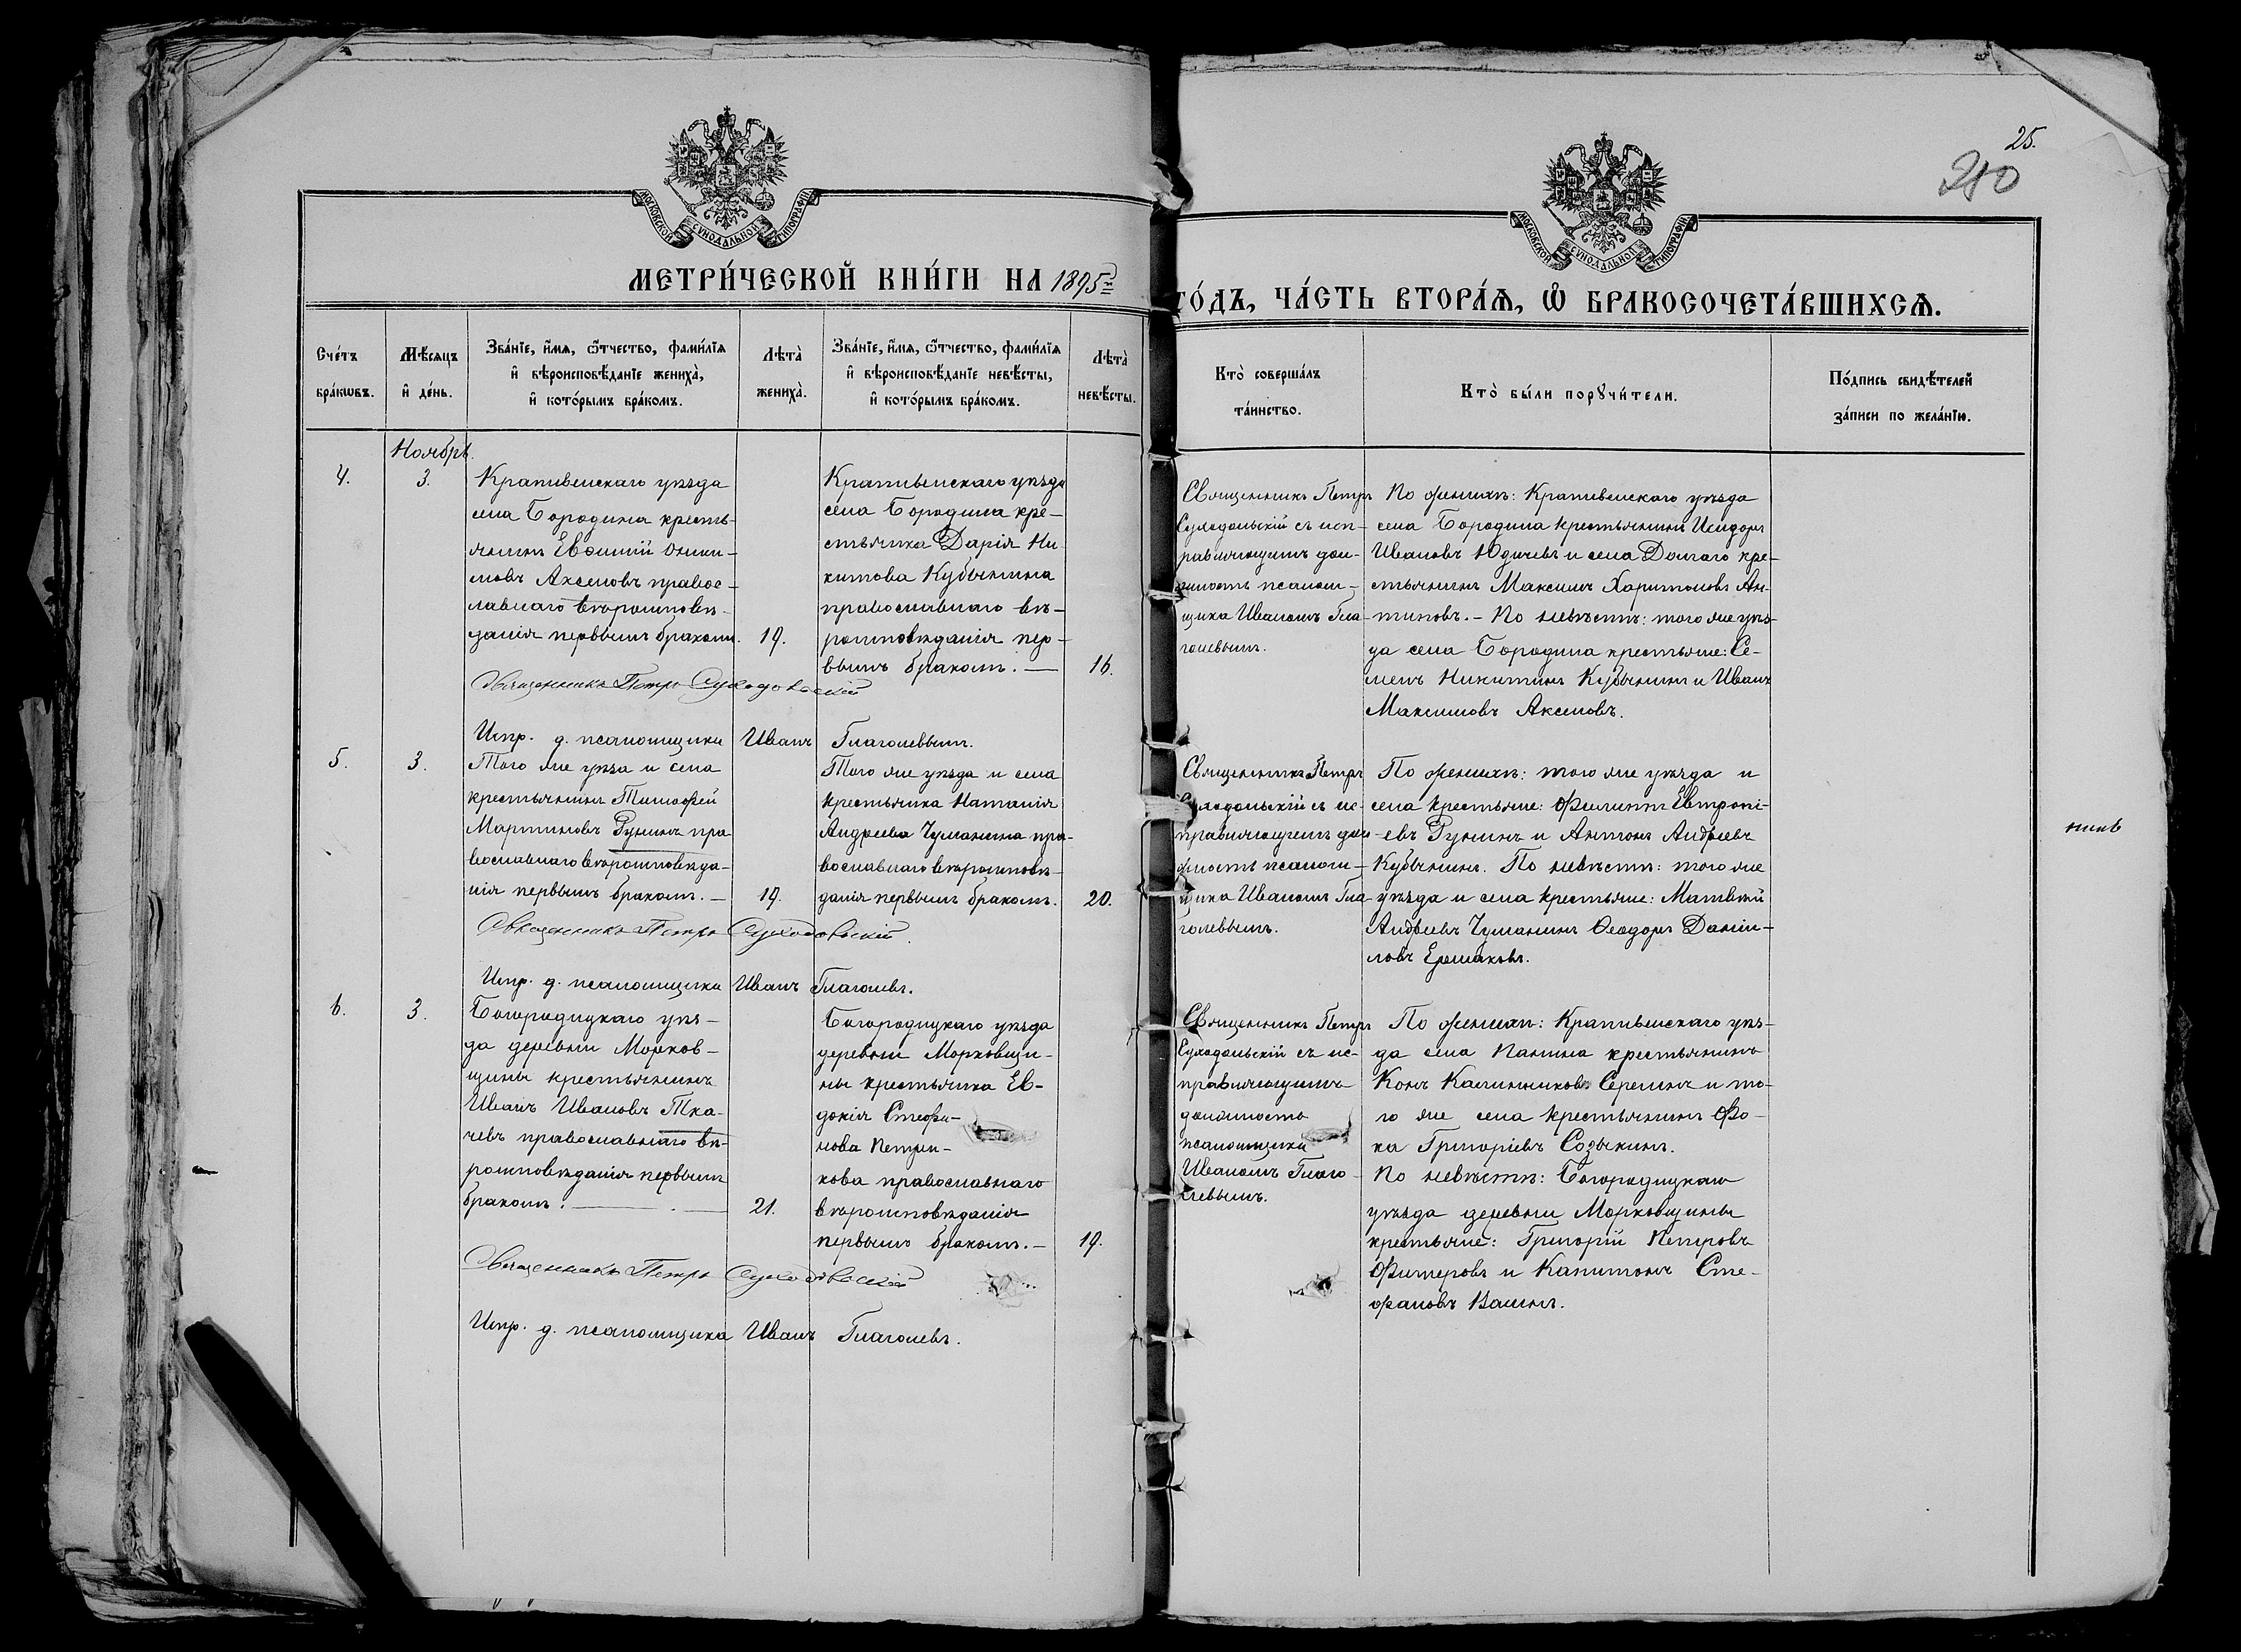 25.
210
МОСКОВСКОЙ СУНОДАЛЬНОЙ ТИПОГРАФІИ
МОСКОВСКОЙ СУНОДАЛЬНОЙ ТИПОГРАФІИ
МЕТРИ́ЧЕСКОЙ КНИ́ГИ НА 1895й
ГО́ДЪ, ЧА́СТЬ ВТОРА́Ѧ, Ѡ БРАКОСОЧЕТА́ВШИХСѦ.
Сче́тъ
бра́кѡвъ.
Мѣ́сяцъ
и҆ де́нь.
Зва́нїе, и҆́мя, ѻ҆́тчество, фами́лїя
и҆ вѣроисповѣ́данїе жениха̀,
и҆ кото́рымъ бра́комъ.
Лѣта̀
жениха̀.
Зва́нїе, и҆́мя, ѻ҆́тчество, фами́лїя
и҆ вѣроисповѣ́данїе невѣ́сты,
и҆ кото́рымъ бра́комъ.
Лѣта̀
невѣ́сты.
Кто̀ соверша́лъ
та́инство.
Кто̀ бы́ли порꙋчи́тели.
По́дпись свидѣ́телей
за́писи по жела́нїю.
Ноябрь.
4.
3.
Крапивенскаго уѣзда
села Бородина кресть-
янинъ Евѳимій Оники-
мовъ Аксеновъ правос-
лавнаго вѣроисповѣ-
данія первымъ бракомъ.
19.
Крапивенскаго уѣзда
села Бородина кре-
стьянка Дарія Ни-
китова Кубынина
православнаго вѣ-
роисповѣданія пер-
вымъ бракомъ. —
16.
Священникъ Петръ
Суходольскій съ исп-
равляющимъ дол-
жность псалом-
щика Иваномъ Гла-
голевымъ.
По женихѣ: Крапивенскаго уѣзда
села Бородина крестьянинъ Исидоръ
Ивановъ Юдичевъ и села Долгаго кре-
стьянинъ Максимъ Харитоновъ Ан-
типовъ. - По невѣстѣ: того же уѣз-
да села Бородина крестьяне: Се-
менъ Никитинъ Кубынинъ и Иванъ
Максимовъ Аксеновъ.
Священникъ Петръ Суходольскій
Испр. д. псаломщика Иванъ Глаголевымъ.
5.
3.
Того же уѣза и села
крестьянинъ Тимоѳей
Мартиновъ Гунинъ пра-
вославнаго вѣроисповѣда-
нія первымъ бракомъ. —
19.
Того же уѣзда и села
крестьянка Наталія
Андреева Чуманина пра-
вославнаго вѣроисповѣ-
данія первымъ бракомъ.
20.
Священникъ Петръ
Суходольскій съ ис-
правляющимъ дол-
жность псалом-
щика Иваномъ Гла-
голевымъ.
По женихѣ: того же уѣзда и
села крестьяне: Филиппъ Евтропі-
евъ Гунинъ и Антонъ Андреевъ
Кубынинъ. По невѣстѣ: того же
уѣзда и села крестьяне: Матвѣй
Андреевъ Чуманинъ Ѳеодоръ Даніи-
ловъ Ермаковъ.
Священникъ Петръ Суходольскій.
Испр. д. псаломщика Иванъ Глаголевъ.
6.
3.
Богородицкаго уѣз-
да деревни Морков-
щины крестьянинъ
Иванъ Ивановъ Тка-
чевъ православнаго вѣ-
роисповѣданія первымъ
бракомъ. —
21.
Богородицкаго уѣзда
деревни Морковщи-
ны крестьянка Ев-
докія Стефа-
нова Петри-
кова православнаго
вѣроисповѣданія
первымъ бракомъ. —
19.
Священникъ Петръ
Суходольскій съ ис-
правляющимъ
должность
псаломщика
Иваномъ Глаго-
левымъ.
По женихѣ: Крапивенскаго уѣз-
да села Панина крестьянинъ
Конъ Калинниковъ Серегинъ и то-
го же села крестьянинъ Фо-
ка Григоріевъ Созыкинъ.
По невѣстѣ: Богородицкаго
уѣзда деревни Морковщины
крестьяне: Григорій Петровъ
Фитеровъ и Капитонъ Сте-
фановъ Васинъ.
Священникъ Петръ Суходольскій
Испр. д. псаломщика Иванъ Глаголевъ.